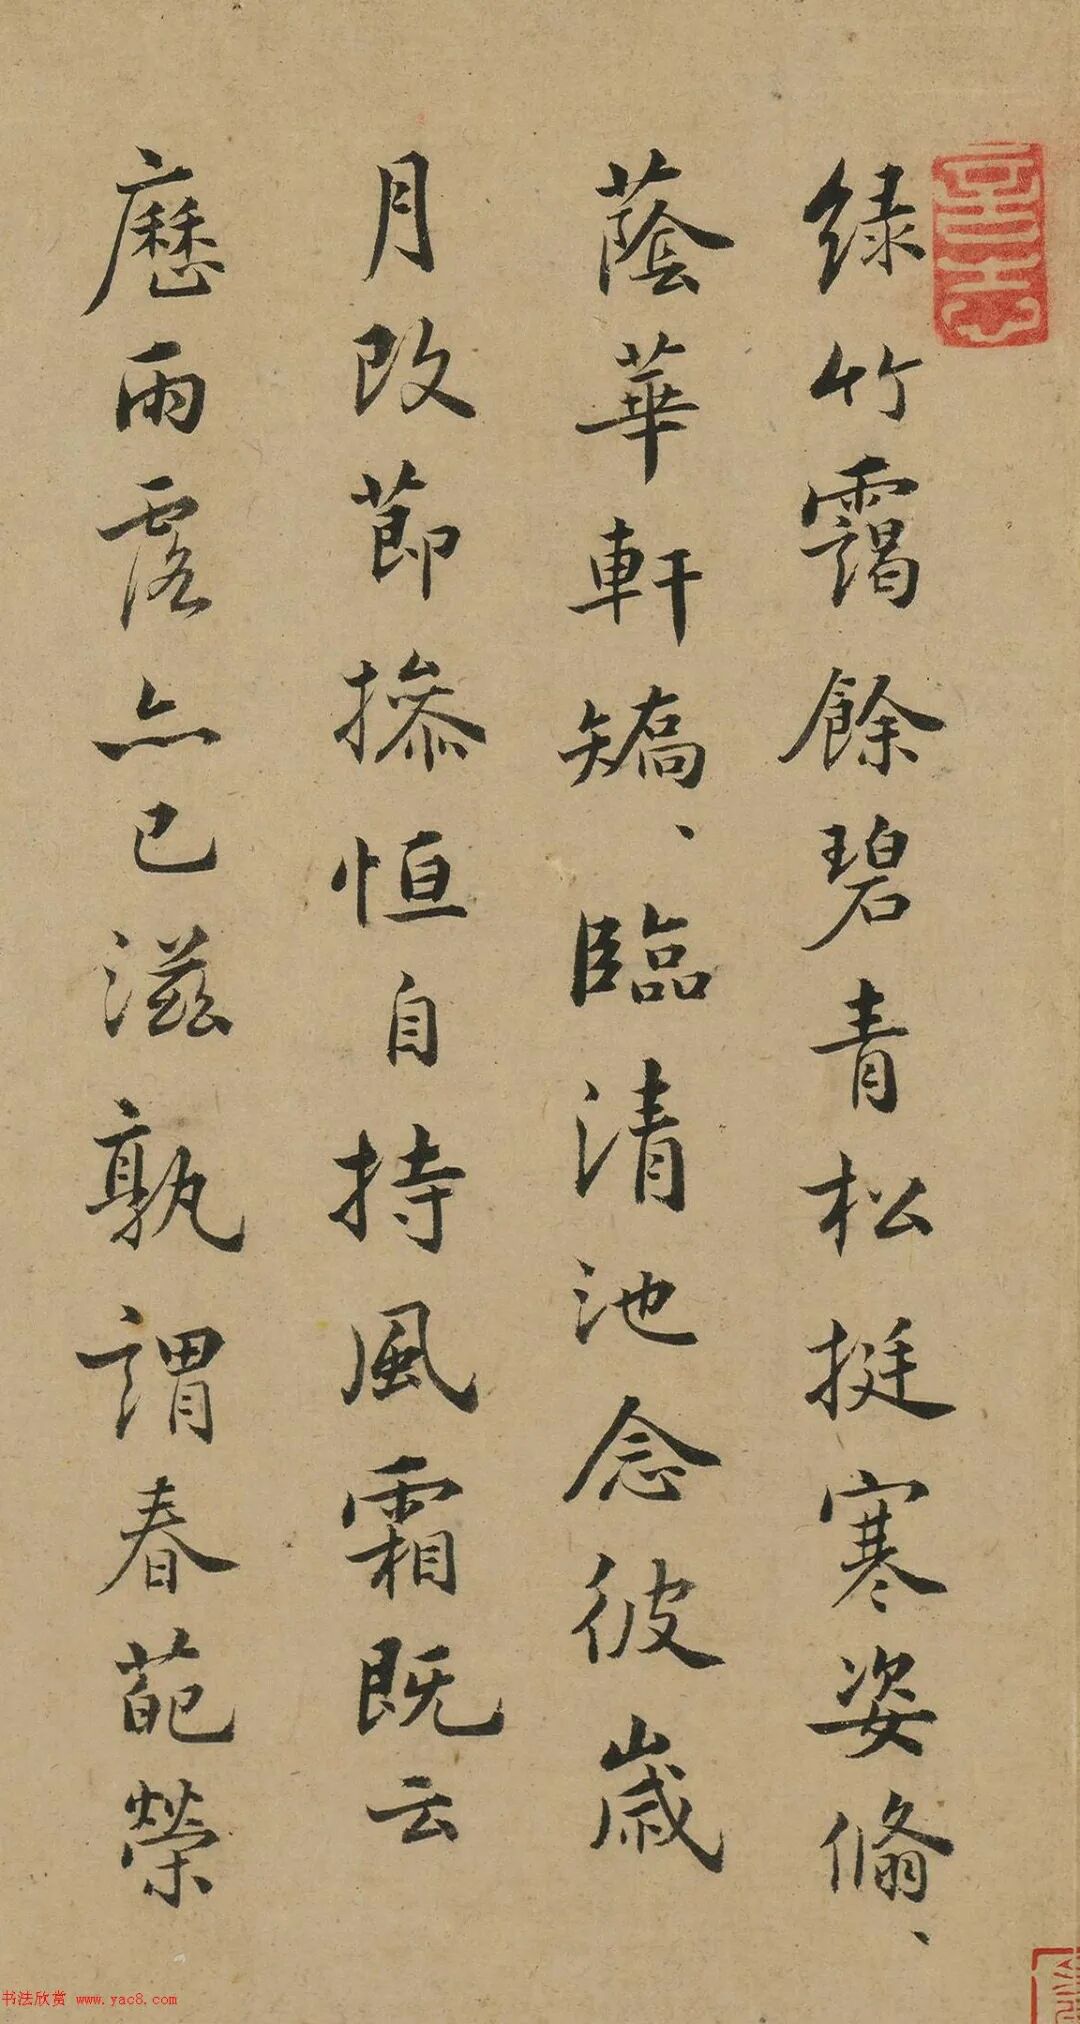 绿竹靄餘碧青松挺寒姿翛、
蔭華軒矯、臨清池念彼歲
月改莭摻恒自持風霜既云
歷雨露亦已滋孰謂春葩榮
书法欣赏 www.yac8.com